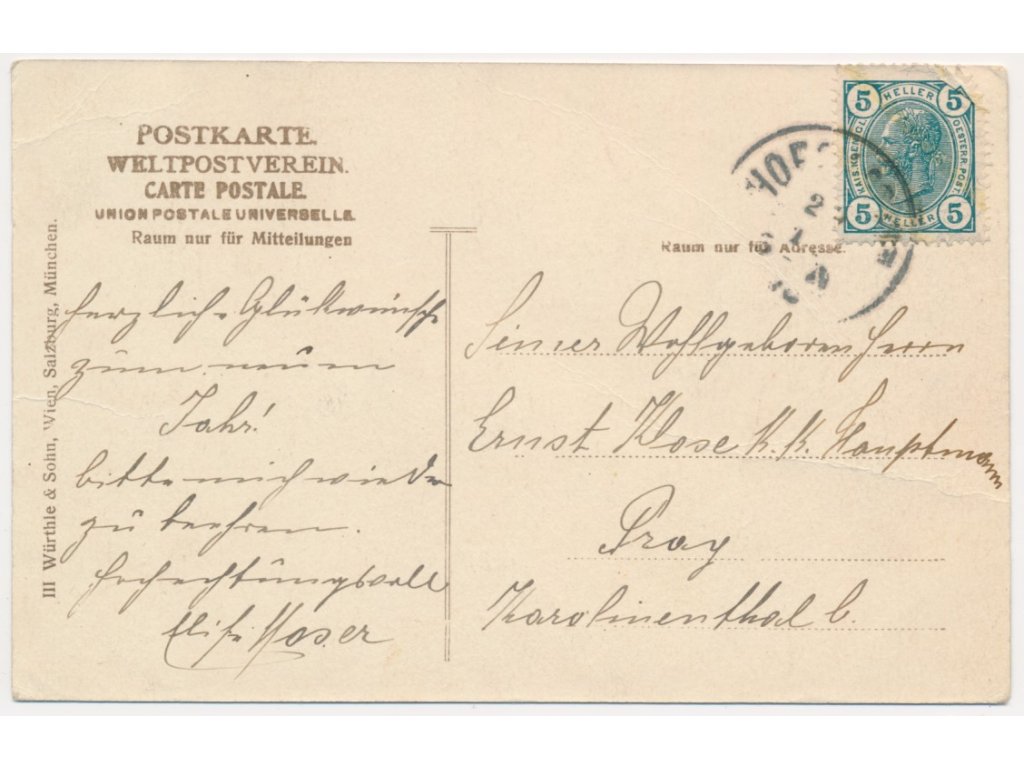 POSTKARTE.
WELTPOSTVEREIN.
CARTE POSTALE.
UNION POSTALE UNIVERSELLE.
Raum nur für Mitteilungen
III Würthle & Sohn, Wien, Salzburg, München.
herzliche Glükwünsche
zum neuen
Jahr!
bitte mich wieder
zu beehren.
hochachtungsvoll
Elise Moser
5 HELLER 5
KAIS. KOENIGL. OESTERR. POST.
5 HELLER 5
Raum nur für Adresse.
Seiner Wohlgeboren Herrn
Ernst Klose K. K. Hauptmann
Prag
Karolinenthal